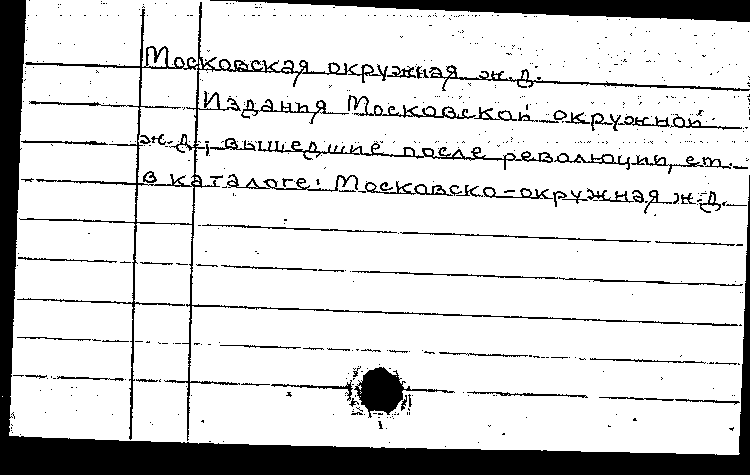 Московская окружная ж.д.
Издания Московской окружной
ж.д., вышедшие после революции, см.
в каталоге: Московско-окружная ж.д.